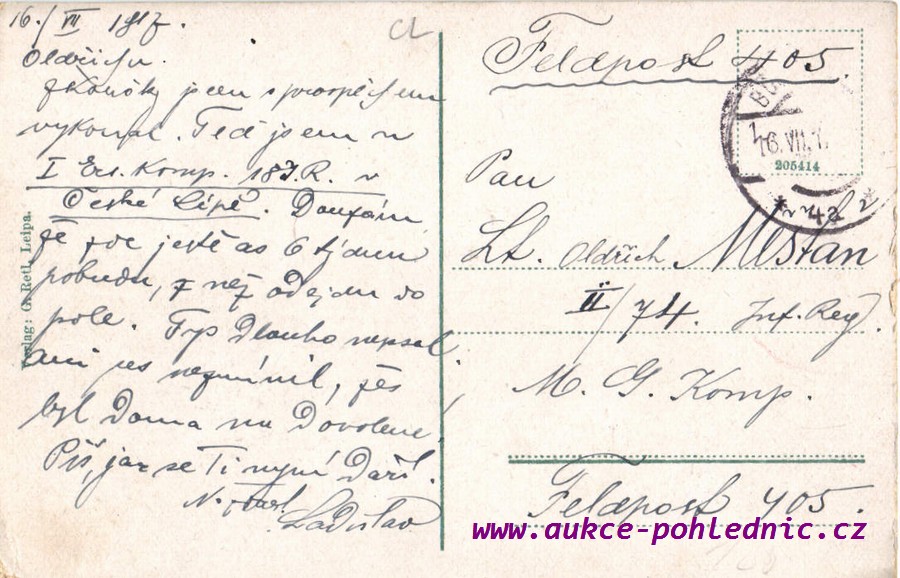 16./VII 1917.
Oldřichu.
Zkoušky jsem s prospěchem
vykonal. Teď jsem v
I Ers. Komp. 18 J.R. v
České Lípě. Doufám
že zde ještě as 6 týdnů
pobudu, než odejdu do
pole. Dlouho nepsal
ani nezmínil, žes
byl Doma na Dovolené!
Piš, jak se Ti nyní Daří.
Ladislav
Verlag: G. Retl, Leipa.
Feldpost 405.
16.VII.1
205414
* 4a *
Pan
Lt. Oldřich Městan
II/74. Inf. Reg.
M. G. Komp.
Feldpost 405.
www.aukce-pohlednic.cz